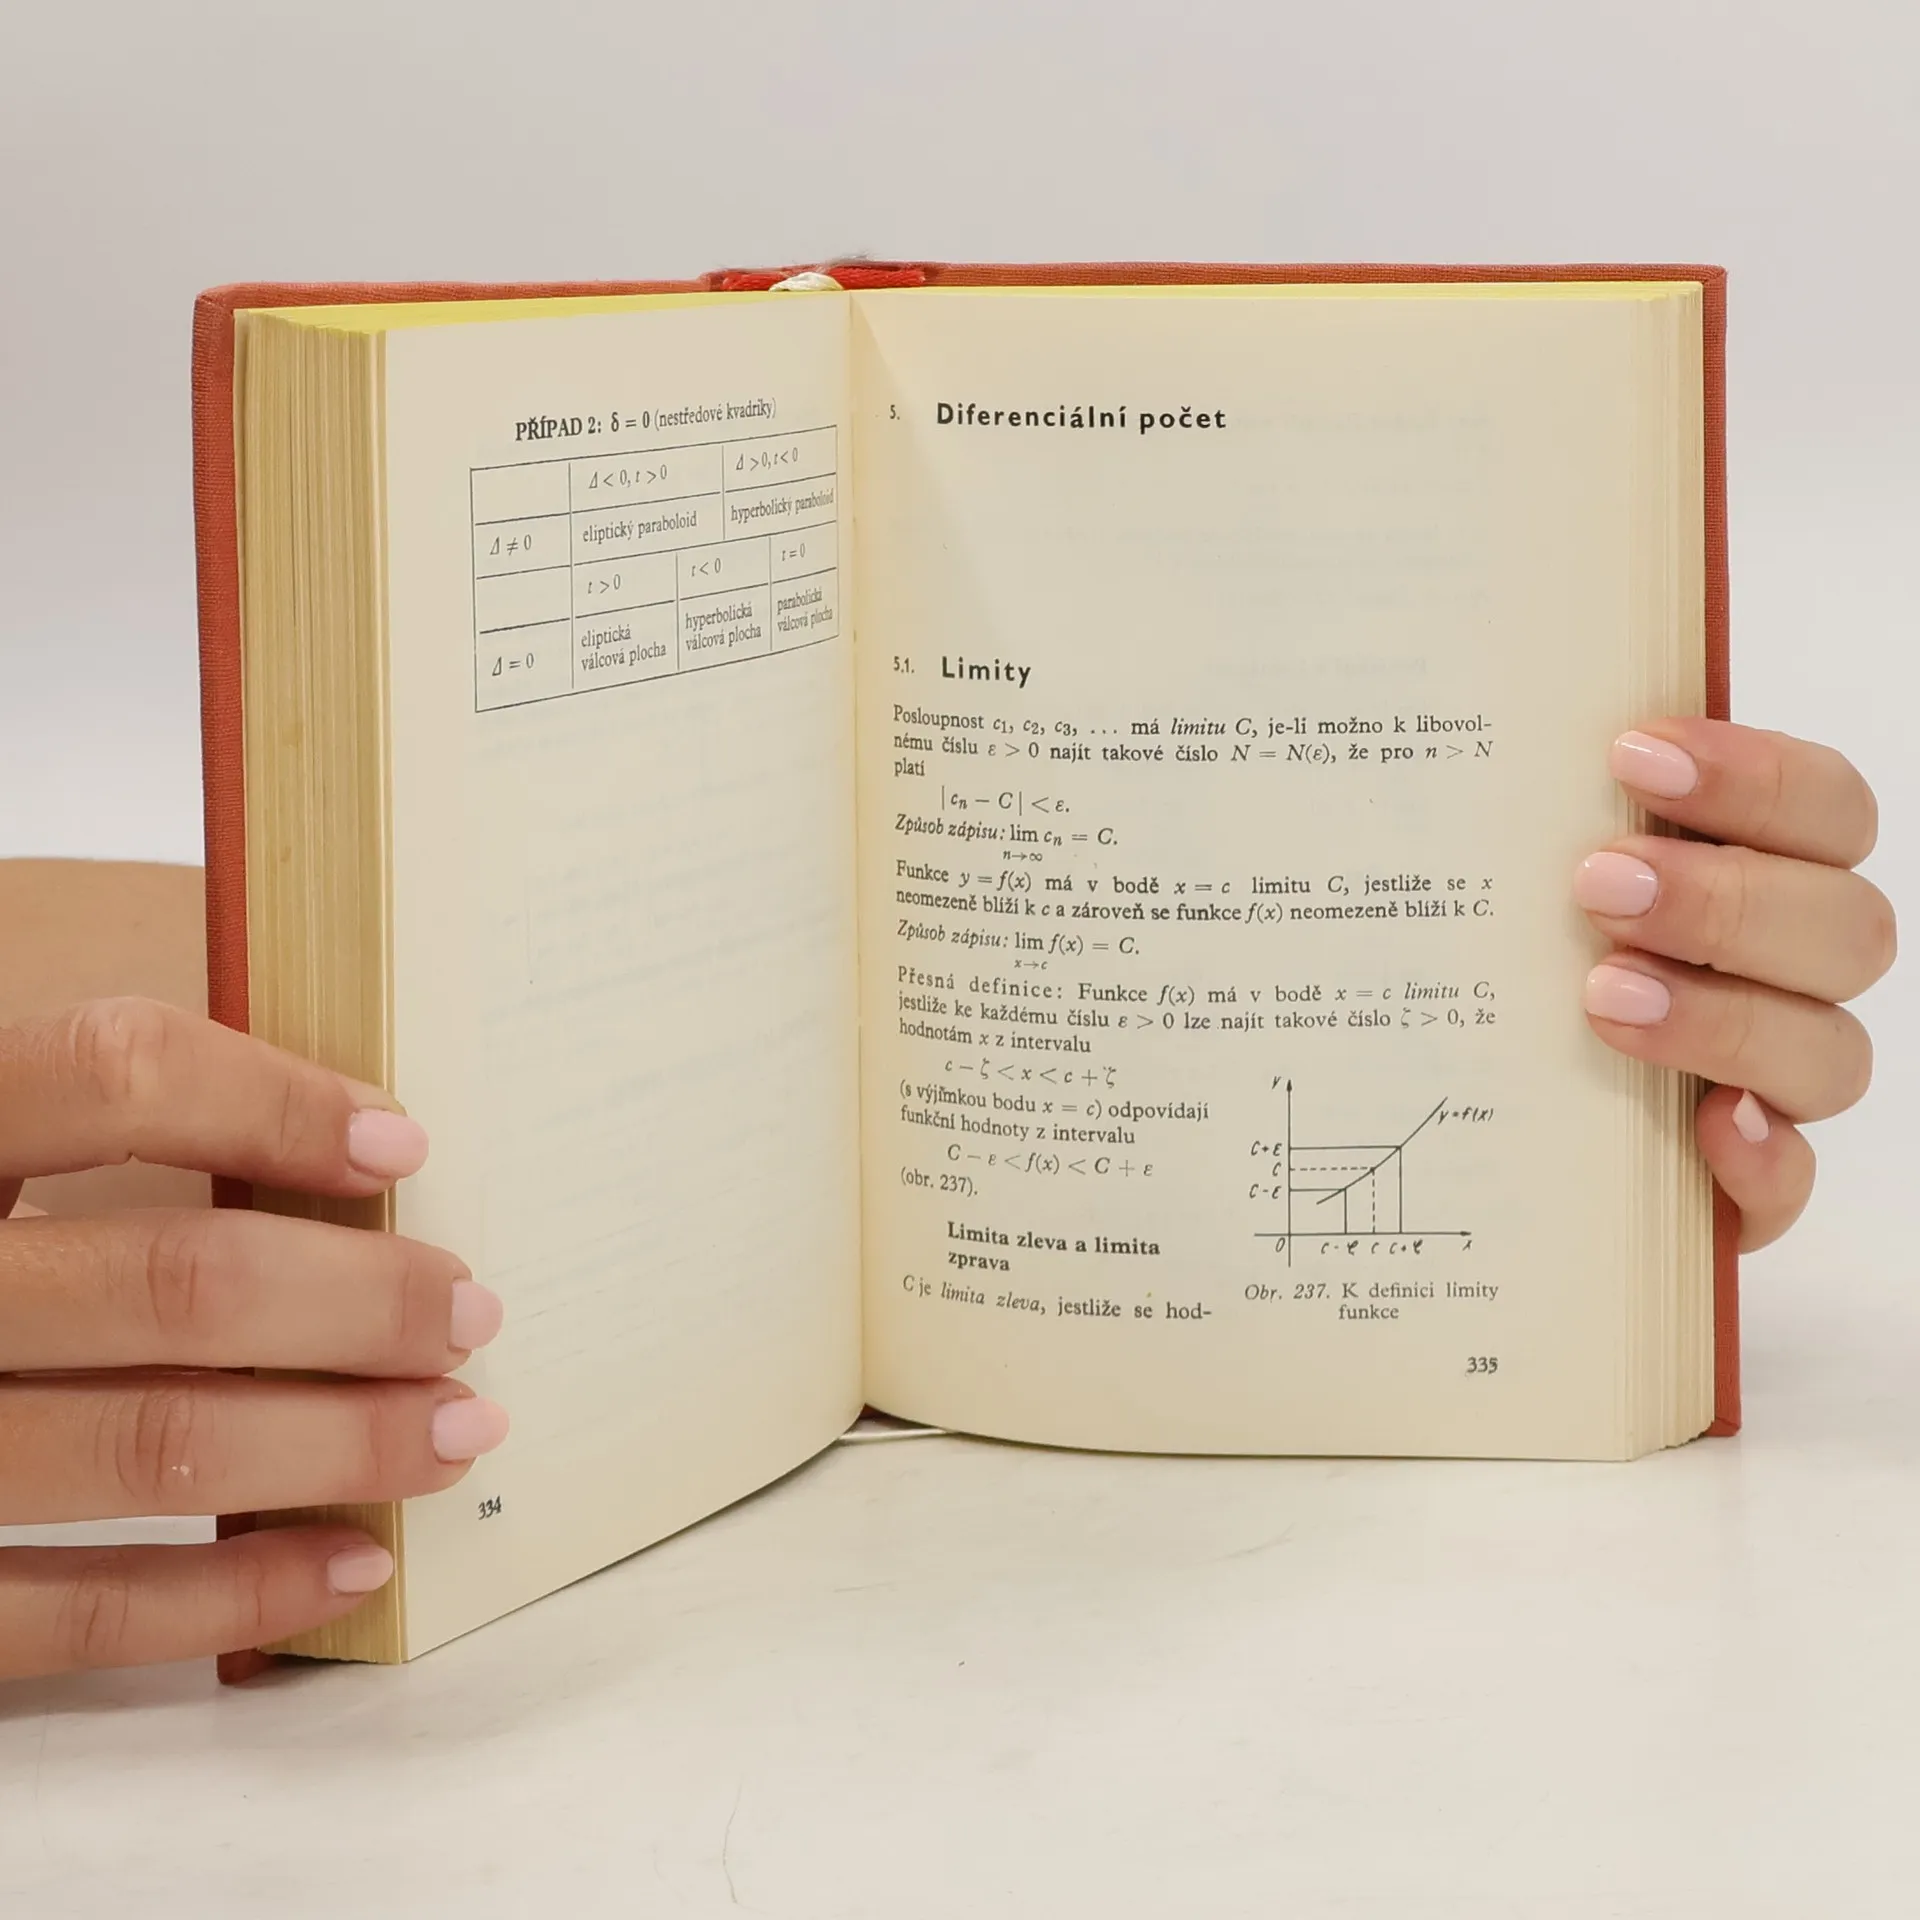 PŘÍPAD 2: δ = 0 (nestředové kvadriky)
Δ < 0, t > 0
Δ > 0, t < 0
Δ ≠ 0
eliptický paraboloid
hyperbolický paraboloid
t > 0
t < 0
t = 0
Δ = 0
eliptická
válcová plocha
hyperbolická
válcová plocha
parabolická
válcová plocha
334
5. Diferenciální počet
5.1. Limity
Posloupnost c₁, c₂, c₃, ... má limitu C, je-li možno k libovol-
nému číslu ε > 0 najít takové číslo N = N(ε), že pro n > N
platí
|cₙ − C| < ε.
Způsob zápisu: lim cₙ = C.
n→∞
Funkce y = f(x) má v bodě x = c limitu C, jestliže se x
neomezeně blíží k c a zároveň se funkce f(x) neomezeně blíží k C.
Způsob zápisu: lim f(x) = C.
x→c
Přesná definice: Funkce f(x) má v bodě x = c limitu C,
jestliže ke každému číslu ε > 0 lze najít takové číslo ζ > 0, že
hodnotám x z intervalu
c − ζ < x < c + ζ
(s výjimkou bodu x = c) odpovídají
funkční hodnoty z intervalu
C − ε < f(x) < C + ε
(obr. 237).
Limita zleva a limita
zprava
C je limita zleva, jestliže se hod-
y
y=f(x)
C+ε
C
C-ε
0
c
x
Obr. 237. K definici limity
funkce
335